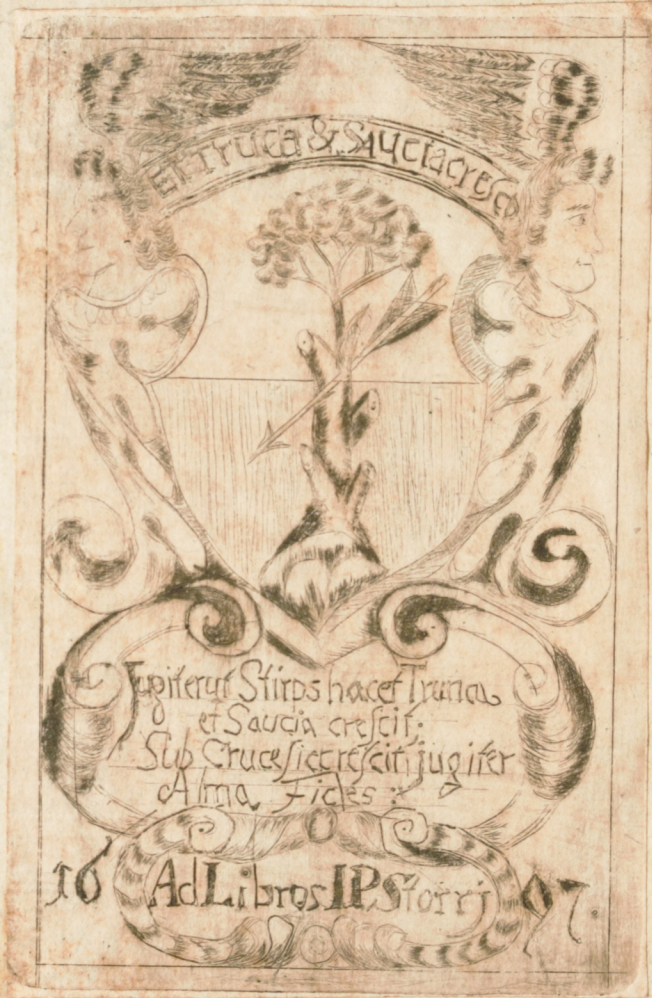 Et Truca & Saucia cresco
Jugiter ut Stirps hacet Trunca
et Saucia crescit;
Sub Cruce sic crescit jugiter
Alma Fides:
16 Ad Libros IP. Storri 97.